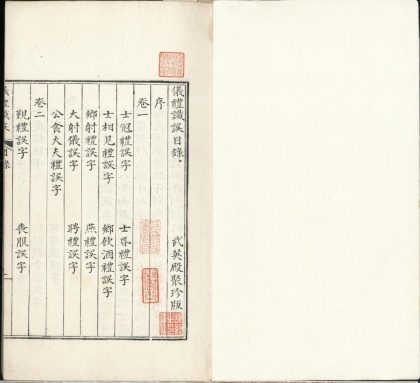 儀禮識誤目錄
武英殿聚珍版
序
卷一
士冠禮誤字 士昏禮誤字
士相見禮誤字 鄉飲酒禮誤字
鄉射禮誤字 燕禮誤字
大射儀誤字 聘禮誤字
公食大夫禮誤字
卷二
覲禮誤字 喪服誤字